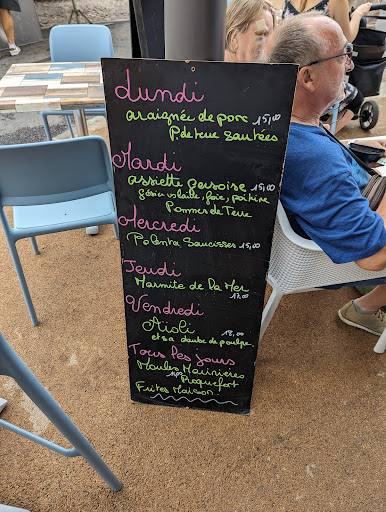 Lundi
araignée de porc 15,00
P. de terre sautées
Mardi
assiette gersoise 15,00
gésier volaille, foie, poitrine
Pommes de Terre
Mercredi
Polenta Saucisses 15,00
Jeudi
Marmite de la Mer
17,00
Vendredi
Aïoli 18,00
et sa daube de poulpe.
Tous les jours
Moules Marinières
Roquefort
Frites Maison!